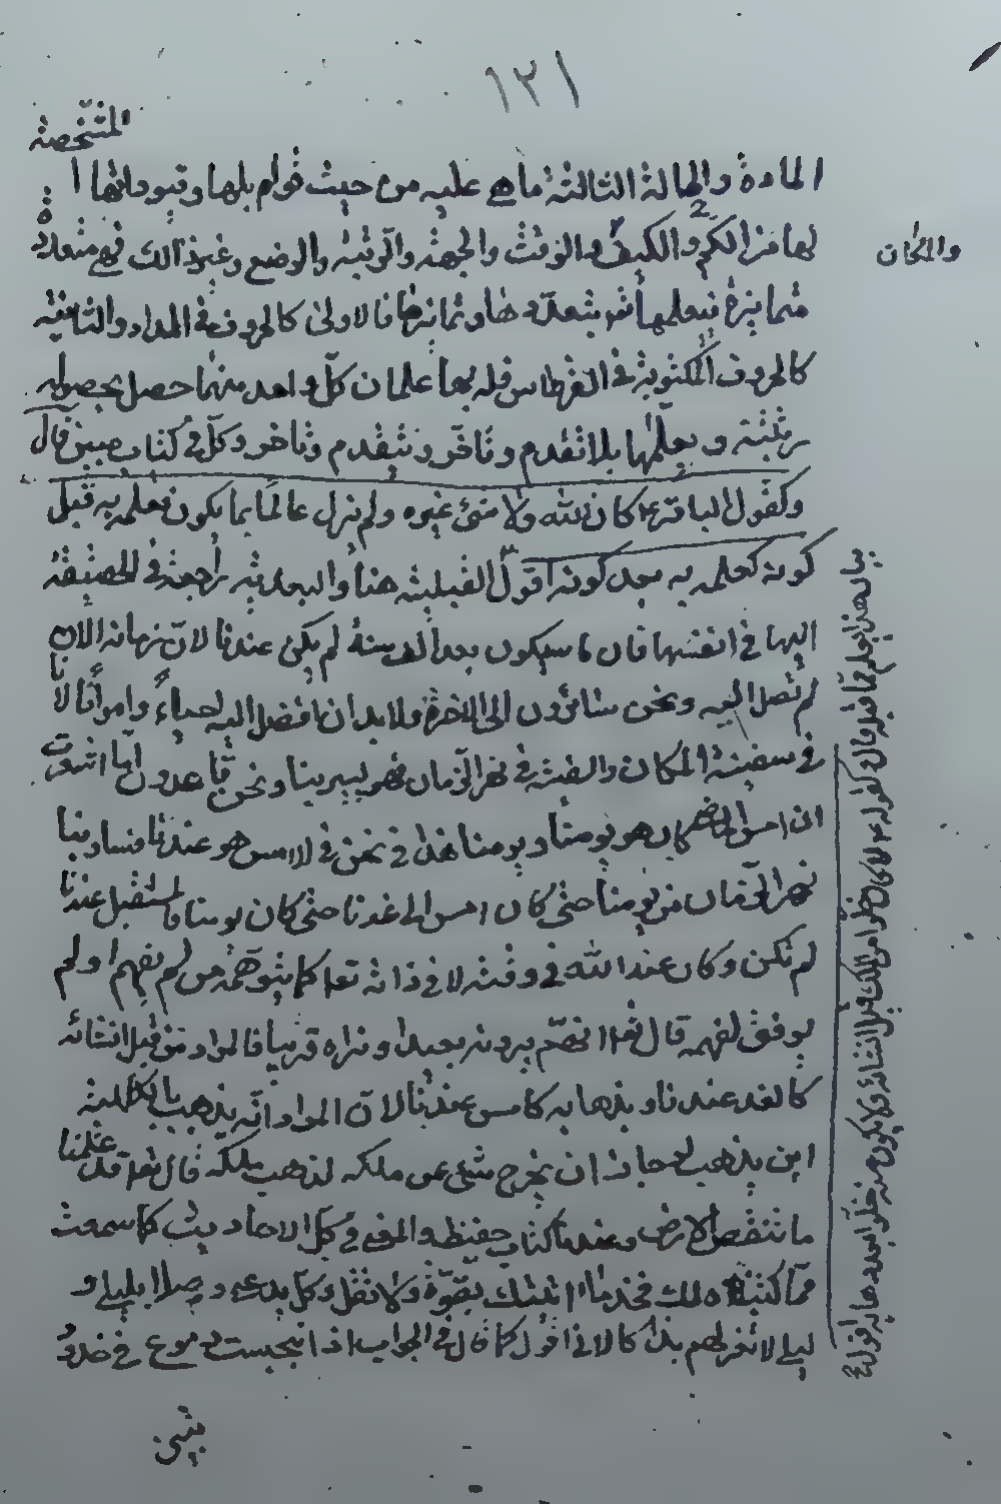 ١٢١
المشخصة
المادة والحالة الثالثة ما هي عليه من حيث قوابلها وقيوداتها ا
لها من الكم والكيف والوقت والجهة والرتبة والوضع وغير ذلك فهي متعددة
والمكان
متمايزة فيعلمها بتعددها وتمايزها فالاولى كالحروف في المداد والثانية
كالحروف المكتوبة في القرطاس فله بها علمان كل واحد منهما حصل بحصوله
رتبته وبعلمها بلا تقدم وتاخر وتتقدم وتاخر وكل في كتاب مبين قال
وكقول الباقر ع كان الله ولا شئ غيره ولم يزل عالما بما يكون فعلمه به قبل
كونه كعلمه به بعد كونه اقول القبلية هنا والبعدية راجعة في الحقيقة
اليها في انفسها فان ما سيكون بعد الف سنة لم يكن عندنا لان زمانه الان
لم نصل اليه ونحن سائرون الى الاخرة ولا بد ان نصل اليه احياء وامواتا لانا
في سفينة المكان والسفينة في نهر الزمان فهو يسير بنا ونحن قاعدون اما اشعرت
ان امس الماضي كان هو يومنا ويومنا هذا في نحن في الامس هو عندنا فساد بنا
نهر الزمان من يومنا حتى كان امس الى غدنا حتى كان يومنا فالمستقبل عندنا
لم يكن وكان عند الله في وقته لا في ذاته تعالى كما يتوهمه من لم يفهم او لم
يوفق لفهمه قال تعالى انهم يرونه بعيدا ونراه قريبا فالمراد من قبل انشائه
كالغد عندنا وبذهابه كامس عندنا لان المراد انه يذهب بالكلية
اين يذهب لو جاز ان يخرج شئ عن ملكه لذهب ملكه قال تعالى قد علمنا
ما تنقص الارض وعندنا كتاب حفيظ والمعنى في كل الاحاديث كما سمعت
مما كتبنا لك فخذ ما اتيتك بقوة ولا تقل وكل يدعي وصلا بليلى و
ليلى لا تقر لهم بذاكا لاني اقول كما قال في الجواب اذا انبجست دموع في خدود
بيان هذا يعلم مما قبله قال وكقوله ع لا كان خلوا من الملك قبل انشائه ولا يكون منه خلوا بعد ذهابه اقول ع
تبين